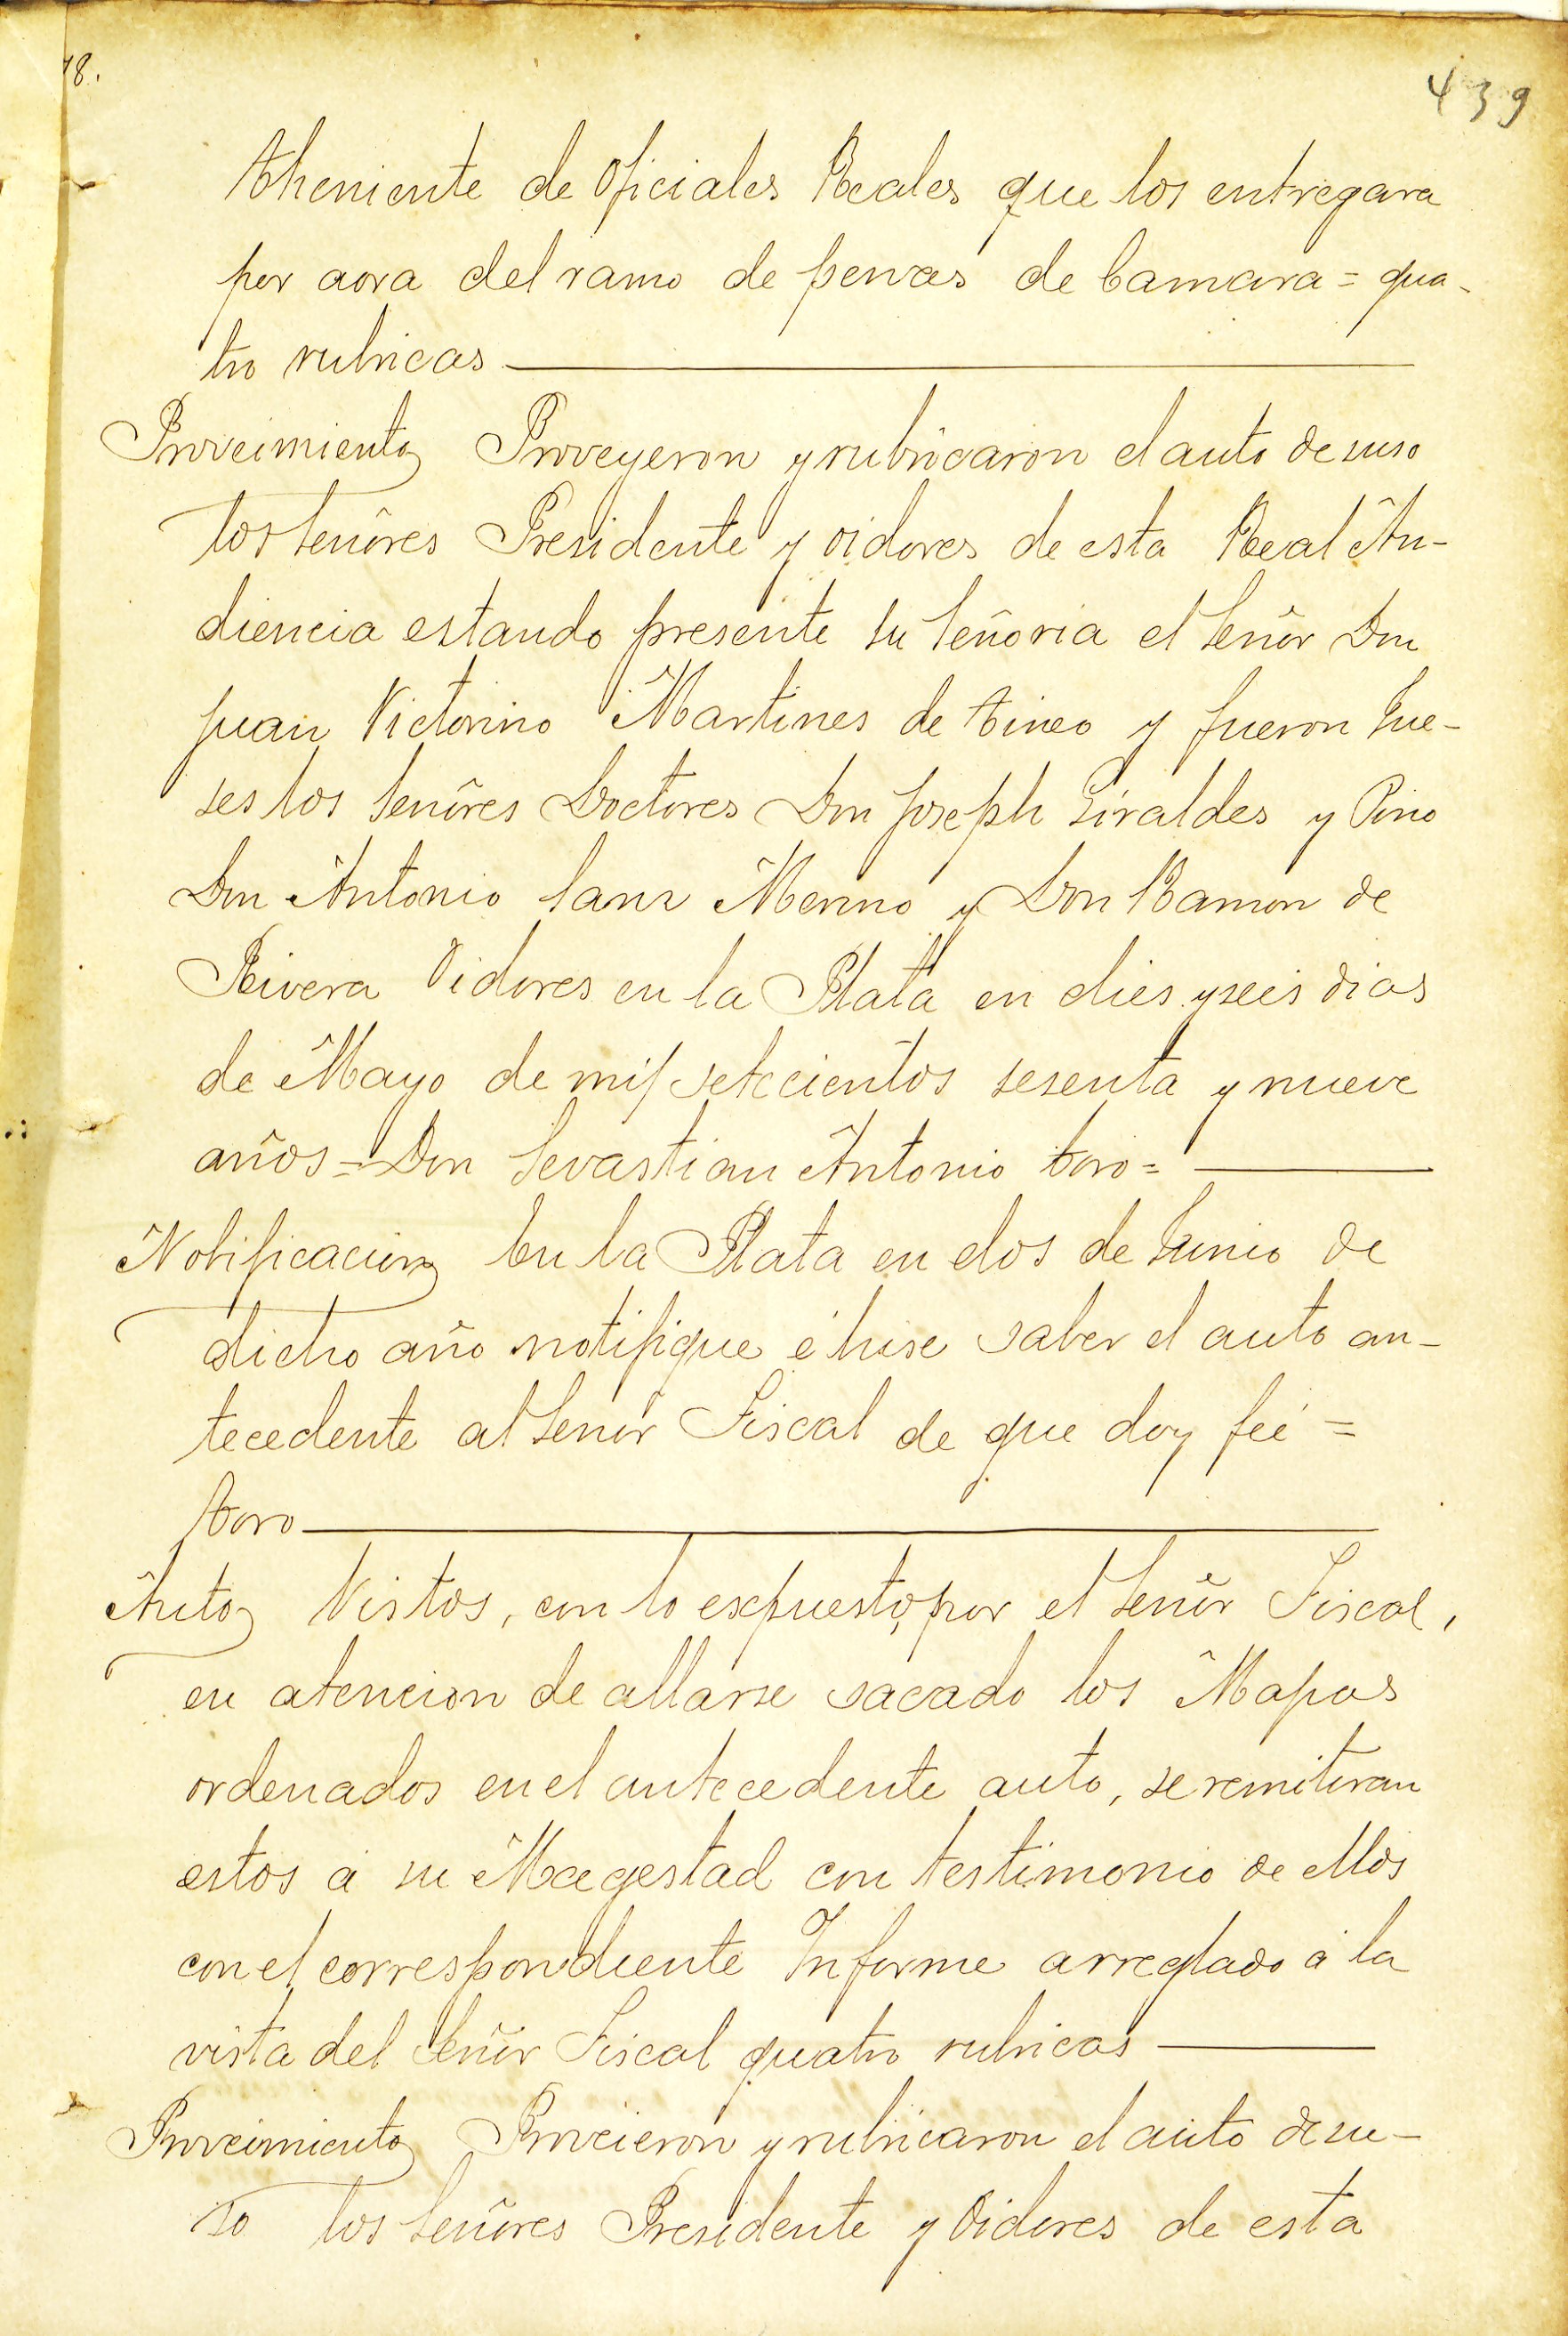 18.
439
Theniente de Oficiales Reales que los entregara
por aora del ramo de penas de Camara = qua-
tro rubricas
Proveimiento Proveyeron y rubricaron el auto de suso
los señores Presidente y oidores de esta Real Au-
diencia estando presente su señoria el señor Don
Juan Victorino Martines de Tineo y fueron Jue-
ses los señores Doctores Don Joseph Giraldes y Pino
Don Antonio Sanz Merino y Don Ramon de
Rivera Oidores en la Plata en dies y seis dias
de Mayo de mil setecientos sesenta y nueve
años = Don Sevastian Antonio Toro =
Notificacion En la Plata en dos de Junio de
dicho año notifique é hise saber el auto an-
tecedente al señor Fiscal de que doy feé =
Toro
Auto Vistos, con lo expuesto, por el señor Fiscal,
en atencion de allarse sacado los Mapas
ordenados en el antecedente auto, se remitiran
estos á su Magestad con testimonio de ellos
con el correspondiente Informe arreglado á la
vista del señor Fiscal quatro rubricas
Proveimiento Proveieron y rubricaron el auto de su-
so los señores Presidente y Oidores de esta